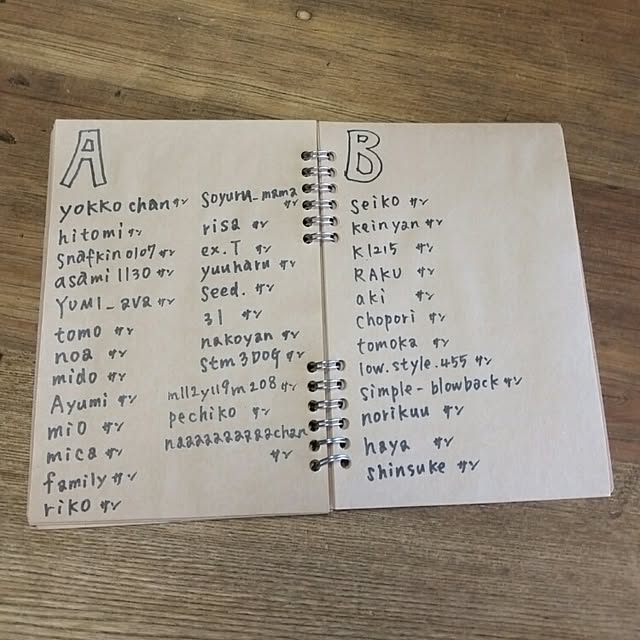 A
yokko chanサン
hitomiサン
snafkin0107サン
asami1130サン
YUMI_avaサン
tomo サン
noa サン
mido サン
Ayumi サン
mio サン
mica サン
familyサン
riko サン
soyuru_mama
サン
risa サン
ex.T サン
yuuharu サン
seed. サン
31 サン
nakoyan サン
stm3DOGサン
m112y119m208サン
pechiko サン
naaaaaaaaaachan
サン
B
seiko サン
keinyan サン
K1215 サン
RAKU サン
aki サン
chopori サン
tomoka サン
low.style.455 サン
simple-blowback サン
norikuu サン
haya サン
shinsuke サン